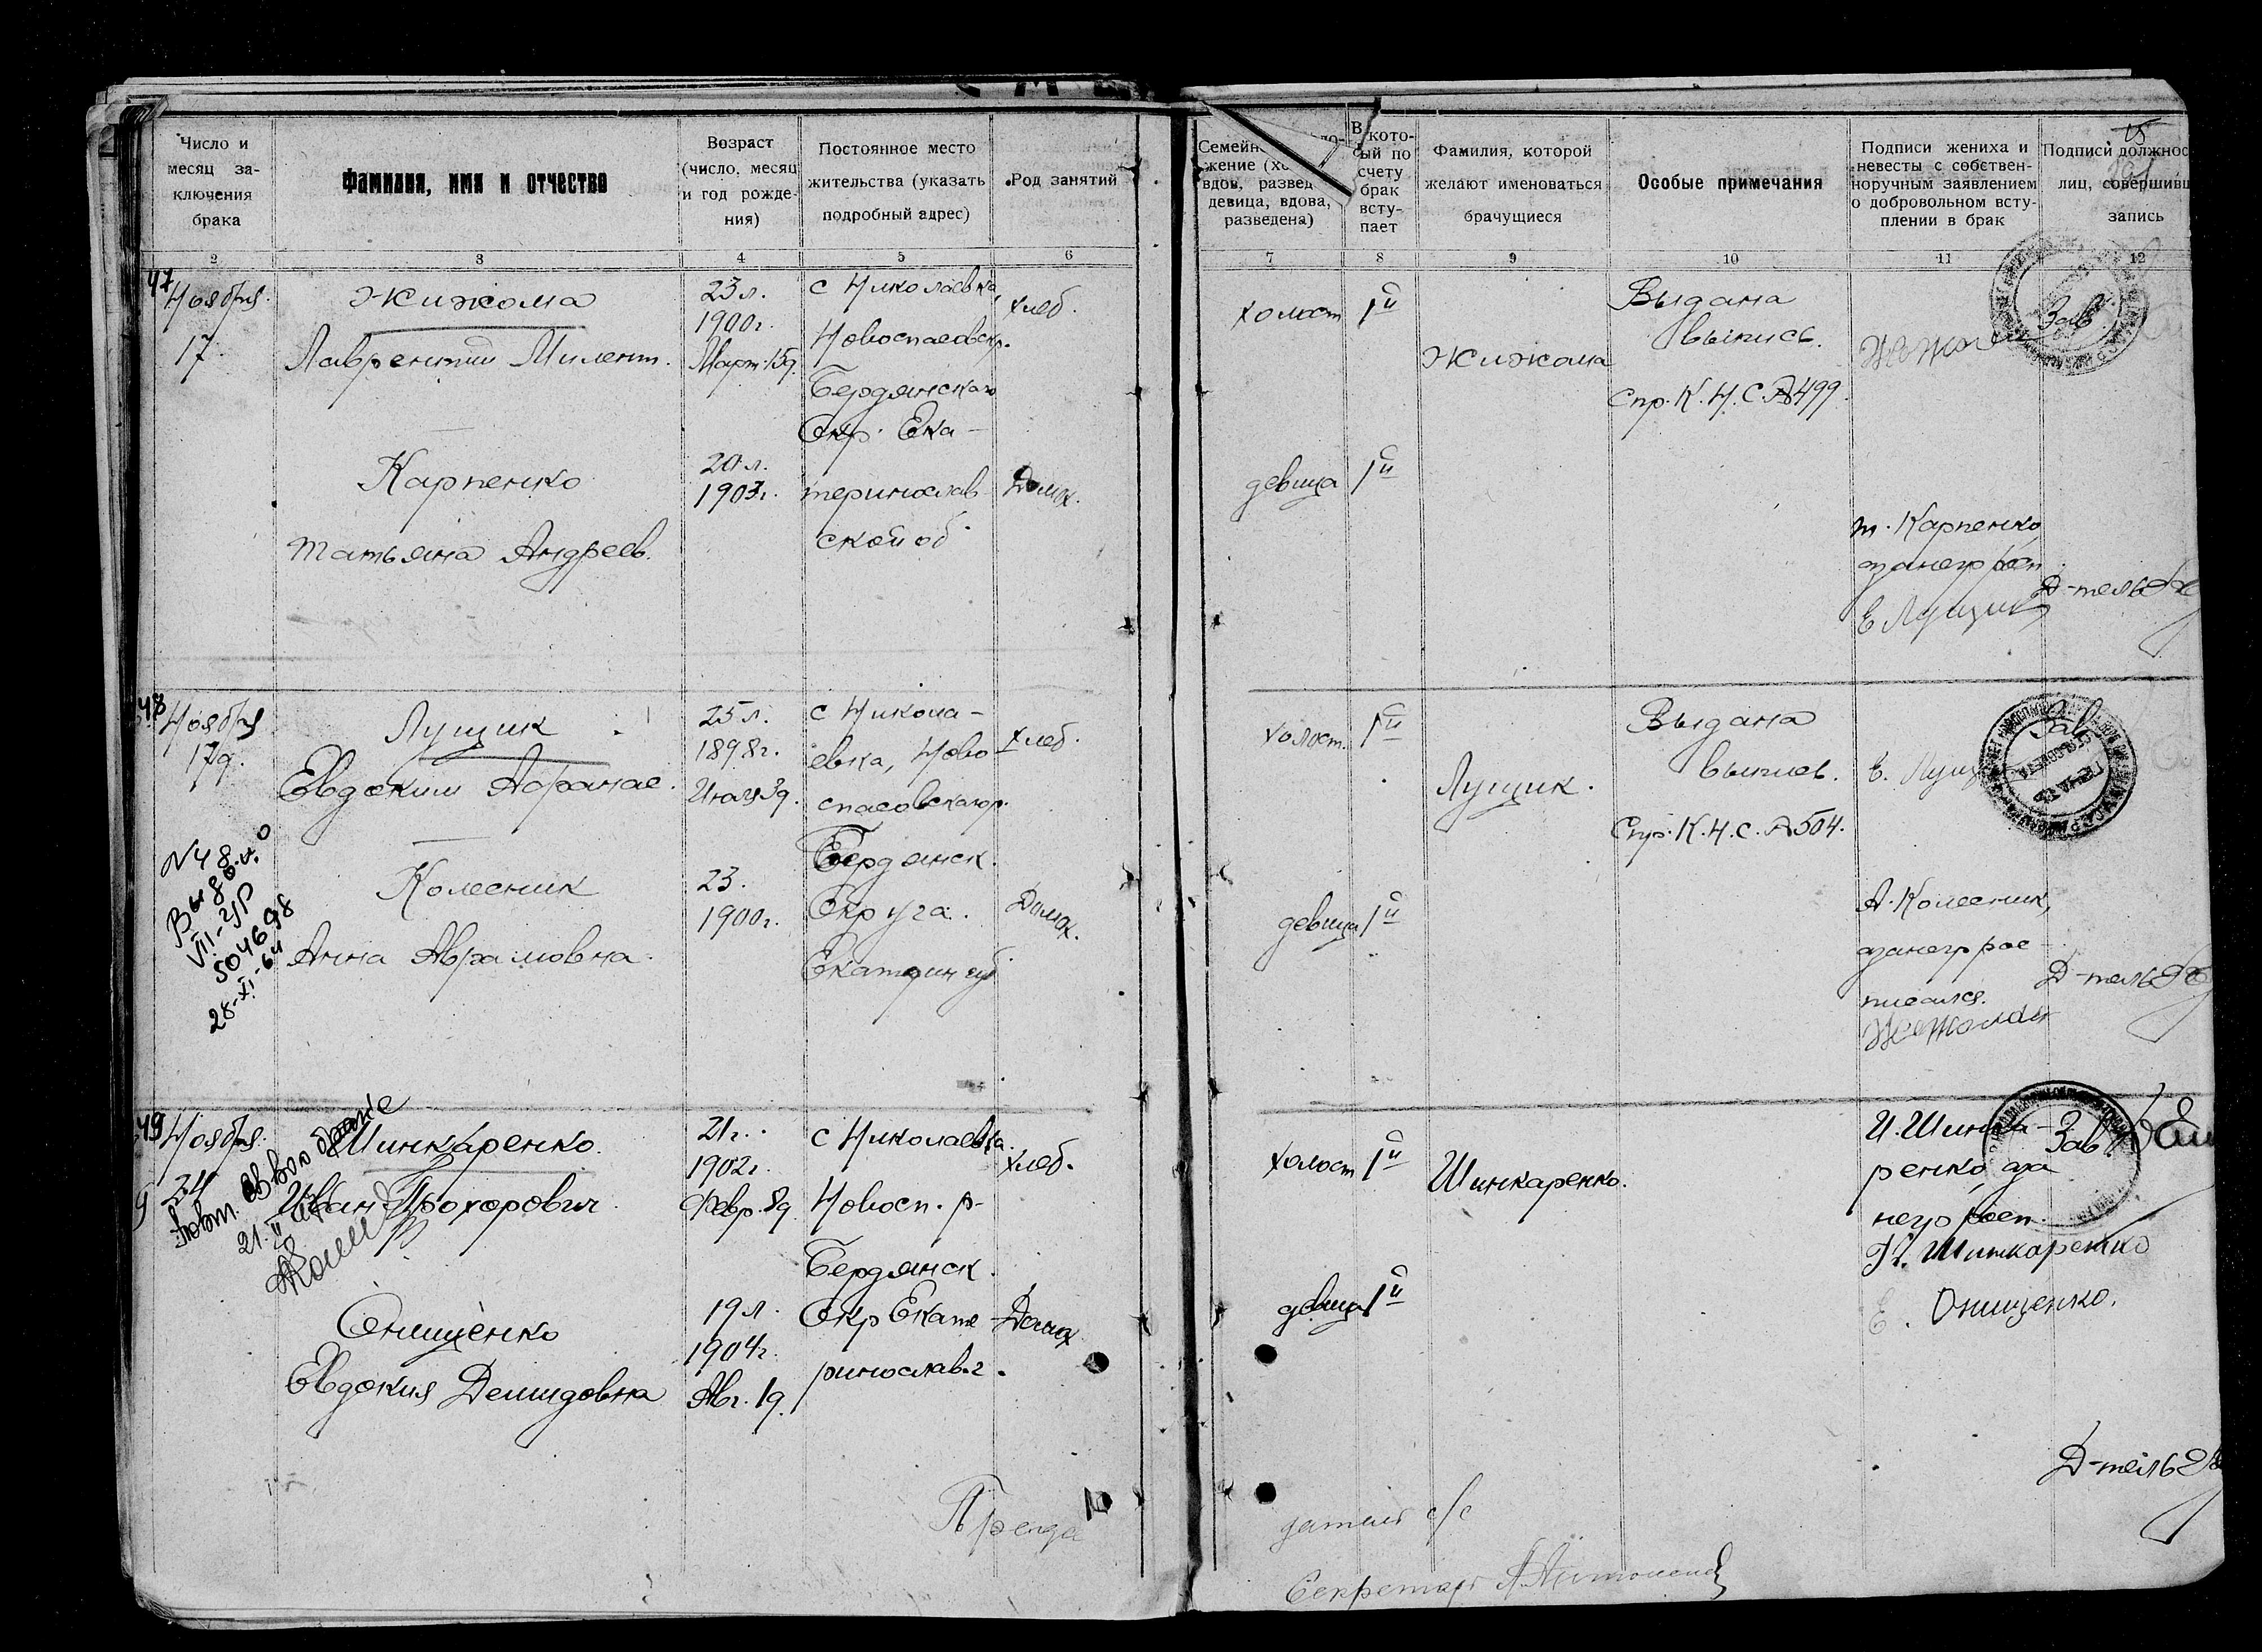 Число и месяц заключения брака
Фамилия, имя и отчество
Возраст (число, месяц и год рождения)
Постоянное место жительства (указать подробный адрес)
Род занятий
2
3
4
5
6
47
Ноября
17
Жижома
Лаврентий Милент.
23 л.
1900 г.
Март 15 д.
с Николаевка
Новоспасовск. р.
Бердянского
Окр. Ека-
теринослав
ской
хлеб.
Карпенко
Татьяна Андреев.
20 л.
1903 г.
Домох.
48
Ноября
17 д.
Лущик
Евдоким Афанас.
25 л.
1898 г.
Июля 3 д.
с Никола-
евка, Ново
спасовского р.
Бердянск.
Округа.
Екатерин губ
хлеб.
Колесник
Анна Аврамовна.
23.
1900 г.
Домох.
N 48
VII-УР
504698
28-XI-64
49
Ноября
24
Шинкаренко.
Иван Прохорович
21 г.
1902 г.
Февр. 8 д.
с Николаевка.
Новосп. р-
Бердянск.
Окр Екате-
ринослав. г.
хлеб.
Повт. св во о браке
21. II
Онищенко
Евдокия Демидовна
19 л.
1904 г.
Авг. 1 д.
Домох
Предсе
жение
вдов, развед
девица, вдова, разведена)
счету брак вступает
Фамилия, которой желают именоваться брачущиеся
Особые примечания
Подписи жениха и невесты с собственноручным заявлением о добровольном вступлении в брак
Подписи должнос
лиц, совершивш
запись
7
8
9
10
11
12
холост
1й
Жижома
Выдана
выпись.
Спр. К. Н. С. № 499.
Зав.
девица
1й
т. Карпенко
за негр. расп.
Е Лущик
Д-тель
холост.
1й
Лущик.
Выдана
выпись.
Спр. К. Н. С. № 504.
Е. Лущ
Зав
девица
1й
А. Колесник,
за негр рас
писался.
Д-тель
холост
1й
Шинкаренко.
И. Шинка-
ренко, за
негр расп.
Шинкаренко
Зав.
девица
1й
Е. Онищенко.
Д-тель
датель с/с
Секретарь